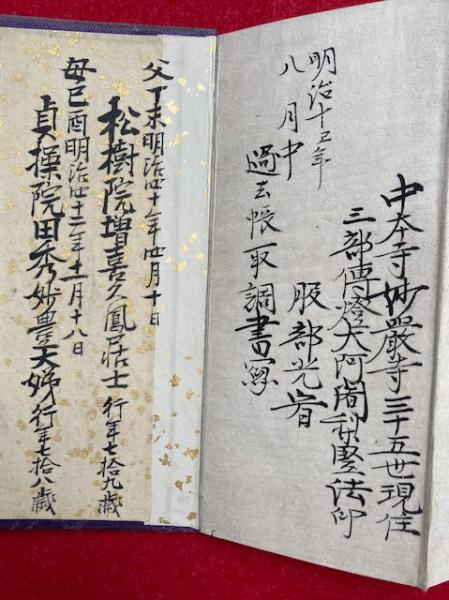 中本寺妙嚴寺三十五世現住
三部傳燈大阿闍梨竪法印
明治十五年
八月中
服部光
過去帳取調書寫
父丁未明治四十年四月十日
松樹院増喜久鳳居士 行年七拾九歳
母己酉明治四十二年十一月十八日
貞操院田秀妙豊大姉 行年七拾八歳